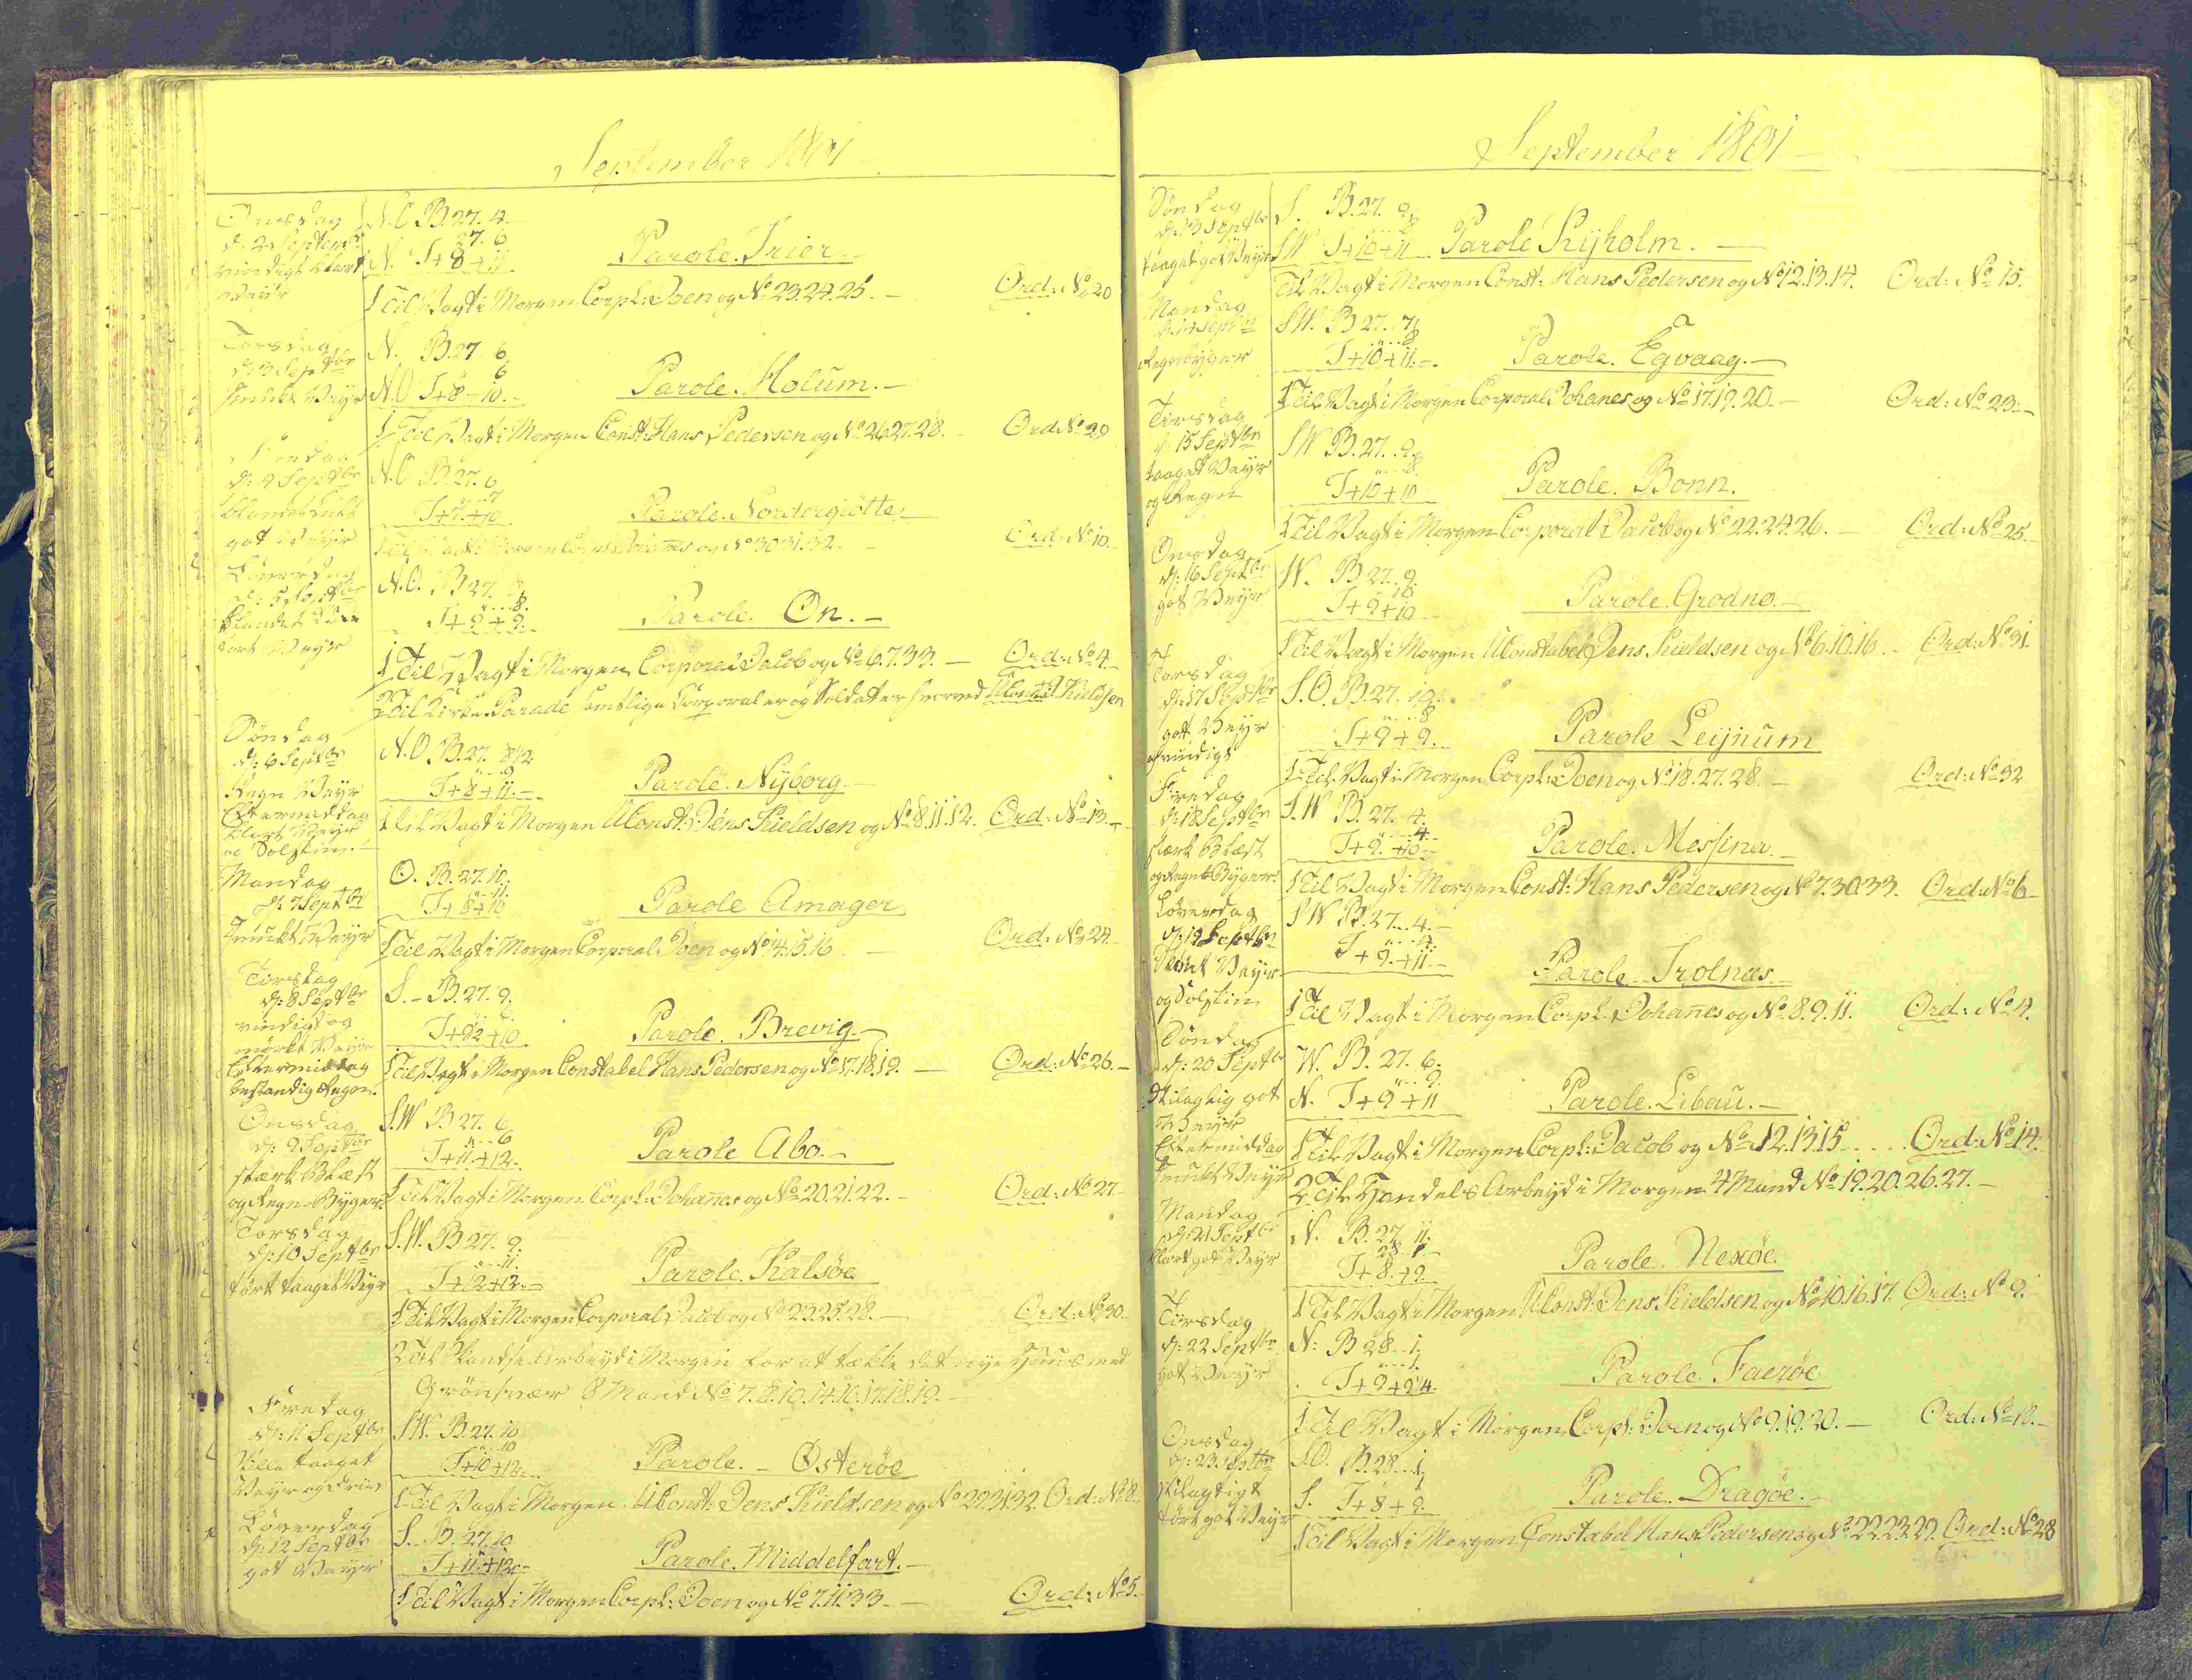 September 1801
Onsdag
d: 2 Septembr
vindigt klart
Veyr
N.O B.27. 4.
27. 6
N. T+8+11
Parole. Trier.
1 Til Vagt i Morgen Corpl: Joen og No 23.24.25. Ord: No 20
Torsdag
d: 3 Septbr
smukt Veyr
N. B.27. 6
6
N.O T+8+10.
Parole. Holum.
1 Til Vagt i Morgen Const: Hans Pedersen og No 26.27.28. Ord No 29
Fredag
d: 4 Septbr
blandet Luft
got Veyr
N.O B.27. 6
"...7
T+7.+10
Parole. Nordergiötte
1 Til Vagt i Morgen Corpl: Johanes og No 30.31.32. Ord: No 10.
Löverdag
d: 5 Septbr
blandet Luft
tört Veyr
N.O. B.27. 8
"...8.
T+9+9.
Parole. On.
1 Til Vagt i Morgen Corporal Jacob og No 6.7.33. Ord: No 4.
2 Til Kirke Parade samtlige Corporaler og Soldater hvorved UConst: Kieldsen
Söndag
d: 6 Septbr
Regn Veyr
Eftermiddag
klart Veyr
og Solskin.
N.O B.27. 8 1/2
"...9
T+8+11.
Parole. Nyborg.
1 Til Vagt i Morgen UConst: Jens Kieldsen og No 8.11.12. Ord: No 13.
Mandag
d: 7 Septbr
smukt Veyr
O. B.27.10.
"...11.
T+8+10
Parole Amager
1 Til Vagt i Morgen Corporal Joen og No 14.15.16. Ord: No 24.
Tirsdag
d: 8 Septbr
vindigt og
mörkt Veyr
Eftermiddag
bestandig Regn.
S. B.27. 9.
T+9 1/2+10
Parole. Brevig.
1 Til Vagt i Morgen Constabel Hans Pedersen og No 17.18.19. Ord: No 26.
Onsdag
d: 9 Septbr
stærk Blæst
og Regn Byger.
S.W B.27. 6
"...6
T+11+12.
Parole Abo.
1 Til Vagt i Morgen Corpl: Johanes og No 20.21.22. Ord: No 27.
Torsdag
d: 10 Septbr
tört taaget Veyr
S.W. B.27. 9.
"...11.
T+12+12.
Parole. Kalsöe
1 Til Vagt i Morgen Corporal Jacob og No 23.25.28. Ord: No 30.
2 Til Skandse Arbeyd i Morgen for at tække det nye Huus med
Grönsvær 8 Mand No 7.8.10.14.16.17.18.19.
Fredag
d: 11 Septbr
stille taaget
Veyr
SW. B.27.10
"...10
T+10+12.
Parole. Österöe
1 Til Vagt i Morgen UConst: Jens Kieldsen og No 29.31.32. Ord: No 8.
Löverdag
d: 12 Septbr
got Veyr
S. B.27.10
T+11+12
Parole. Middelfart.
1 Til Vagt i Morgen Corpl: Joen og No 7.11.33. Ord: No 5.
September 1801
Söndag
d: 13 Septbr
taaget got Veyr
S. B.27. 9.
8
SW T+10+11
Parole Ryholm.
Til Vagt i Morgen Const: Hans Pedersen og No 12.13.14. Ord: No 15.
Mandag
d: 14 Septbr
Regnbyger
SW. B.27. 7
"...8
T+10+11.
Parole. Egvaag.
1 Til Vagt i Morgen Corporal Johanes og No 17.19.20. Ord: No 23.
Tirsdag
d: 15 Septbr
taaget Veyr
og Regn
SW B.27. 9.
"...8.
T+10+10
Parole. Bonn.
1 Til Vagt i Morgen Corporal Jacob og No 22.24.26. Ord: No 25.
Onsdag
d: 16 Septbr
got Veyr
W. B.27. 9.
10
T+9+10
Parole. Grodno.
1 Til Vagt i Morgen UConstabel Jens Kieldsen og No 6.10.16. Ord: No 31.
Torsdag
d: 17 Septbr
got Veyr
og vindigt
S.O. B.27. 10.
"...8
T+9+9.
Parole Leijnum
1 Til Vagt i Morgen Corpl: Joen og No 18.27.28. Ord: No 32
Fredag
d: 18 Septbr
stærk Blæst
og Regn Byger.
S.W B.27. 4.
"...4.
T+9.+10
Parole. Messina.
1 Til Vagt i Morgen Const: Hans Pedersen og No 7.30.33. Ord: No 6
Löverdag
d: 19 Septbr
Veyr
og Solskin
SW B.27. 4.
"...4.
T+9.+11
Parole. Trolnæs.
1 Til Vagt i Morgen Corpl: Johanes og No 8.9.11. Ord: No 4.
Söndag
d: 20 Septbr
skilagtig got
Veyr
Eftermiddag
smukt Veyr
W. B.27. 6.
"...9.
N. T+9+11
Parole. Libau.
1 Til Vagt i Morgen Corpl: Jacob og No 12.13.15. Ord: No 14.
2 Til Handels Arbeyd i Morgen 4 Mand No 19.20.26.27.
Mandag
d: 21 Septbr
klart got Veyr
N. B.27. 11.
28. 1.
T+8.+9.
Parole. Nexöe.
1 Til Vagt i Morgen UConst: Jens Kieldsen og No 10.16.17. Ord: No 9.
Tirsdag
d: 22 Septbr
got Veyr
N: B 28. 1.
"...1.
T+9+9 1/4.
Parole. Faeröe
1 Til Vagt i Morgen Corpl: Joen og No 9.19.20. Ord: No 18.
Onsdag
d: 23 Septbr
skilagtigt
tört got Veyr
S.O. B.28. 1.
1
S. T+8+9.
Parole. Dragöe.
1 Til Vagt i Morgen Constabel Hans Pedersen og No 22.23.29. Ord: No 28